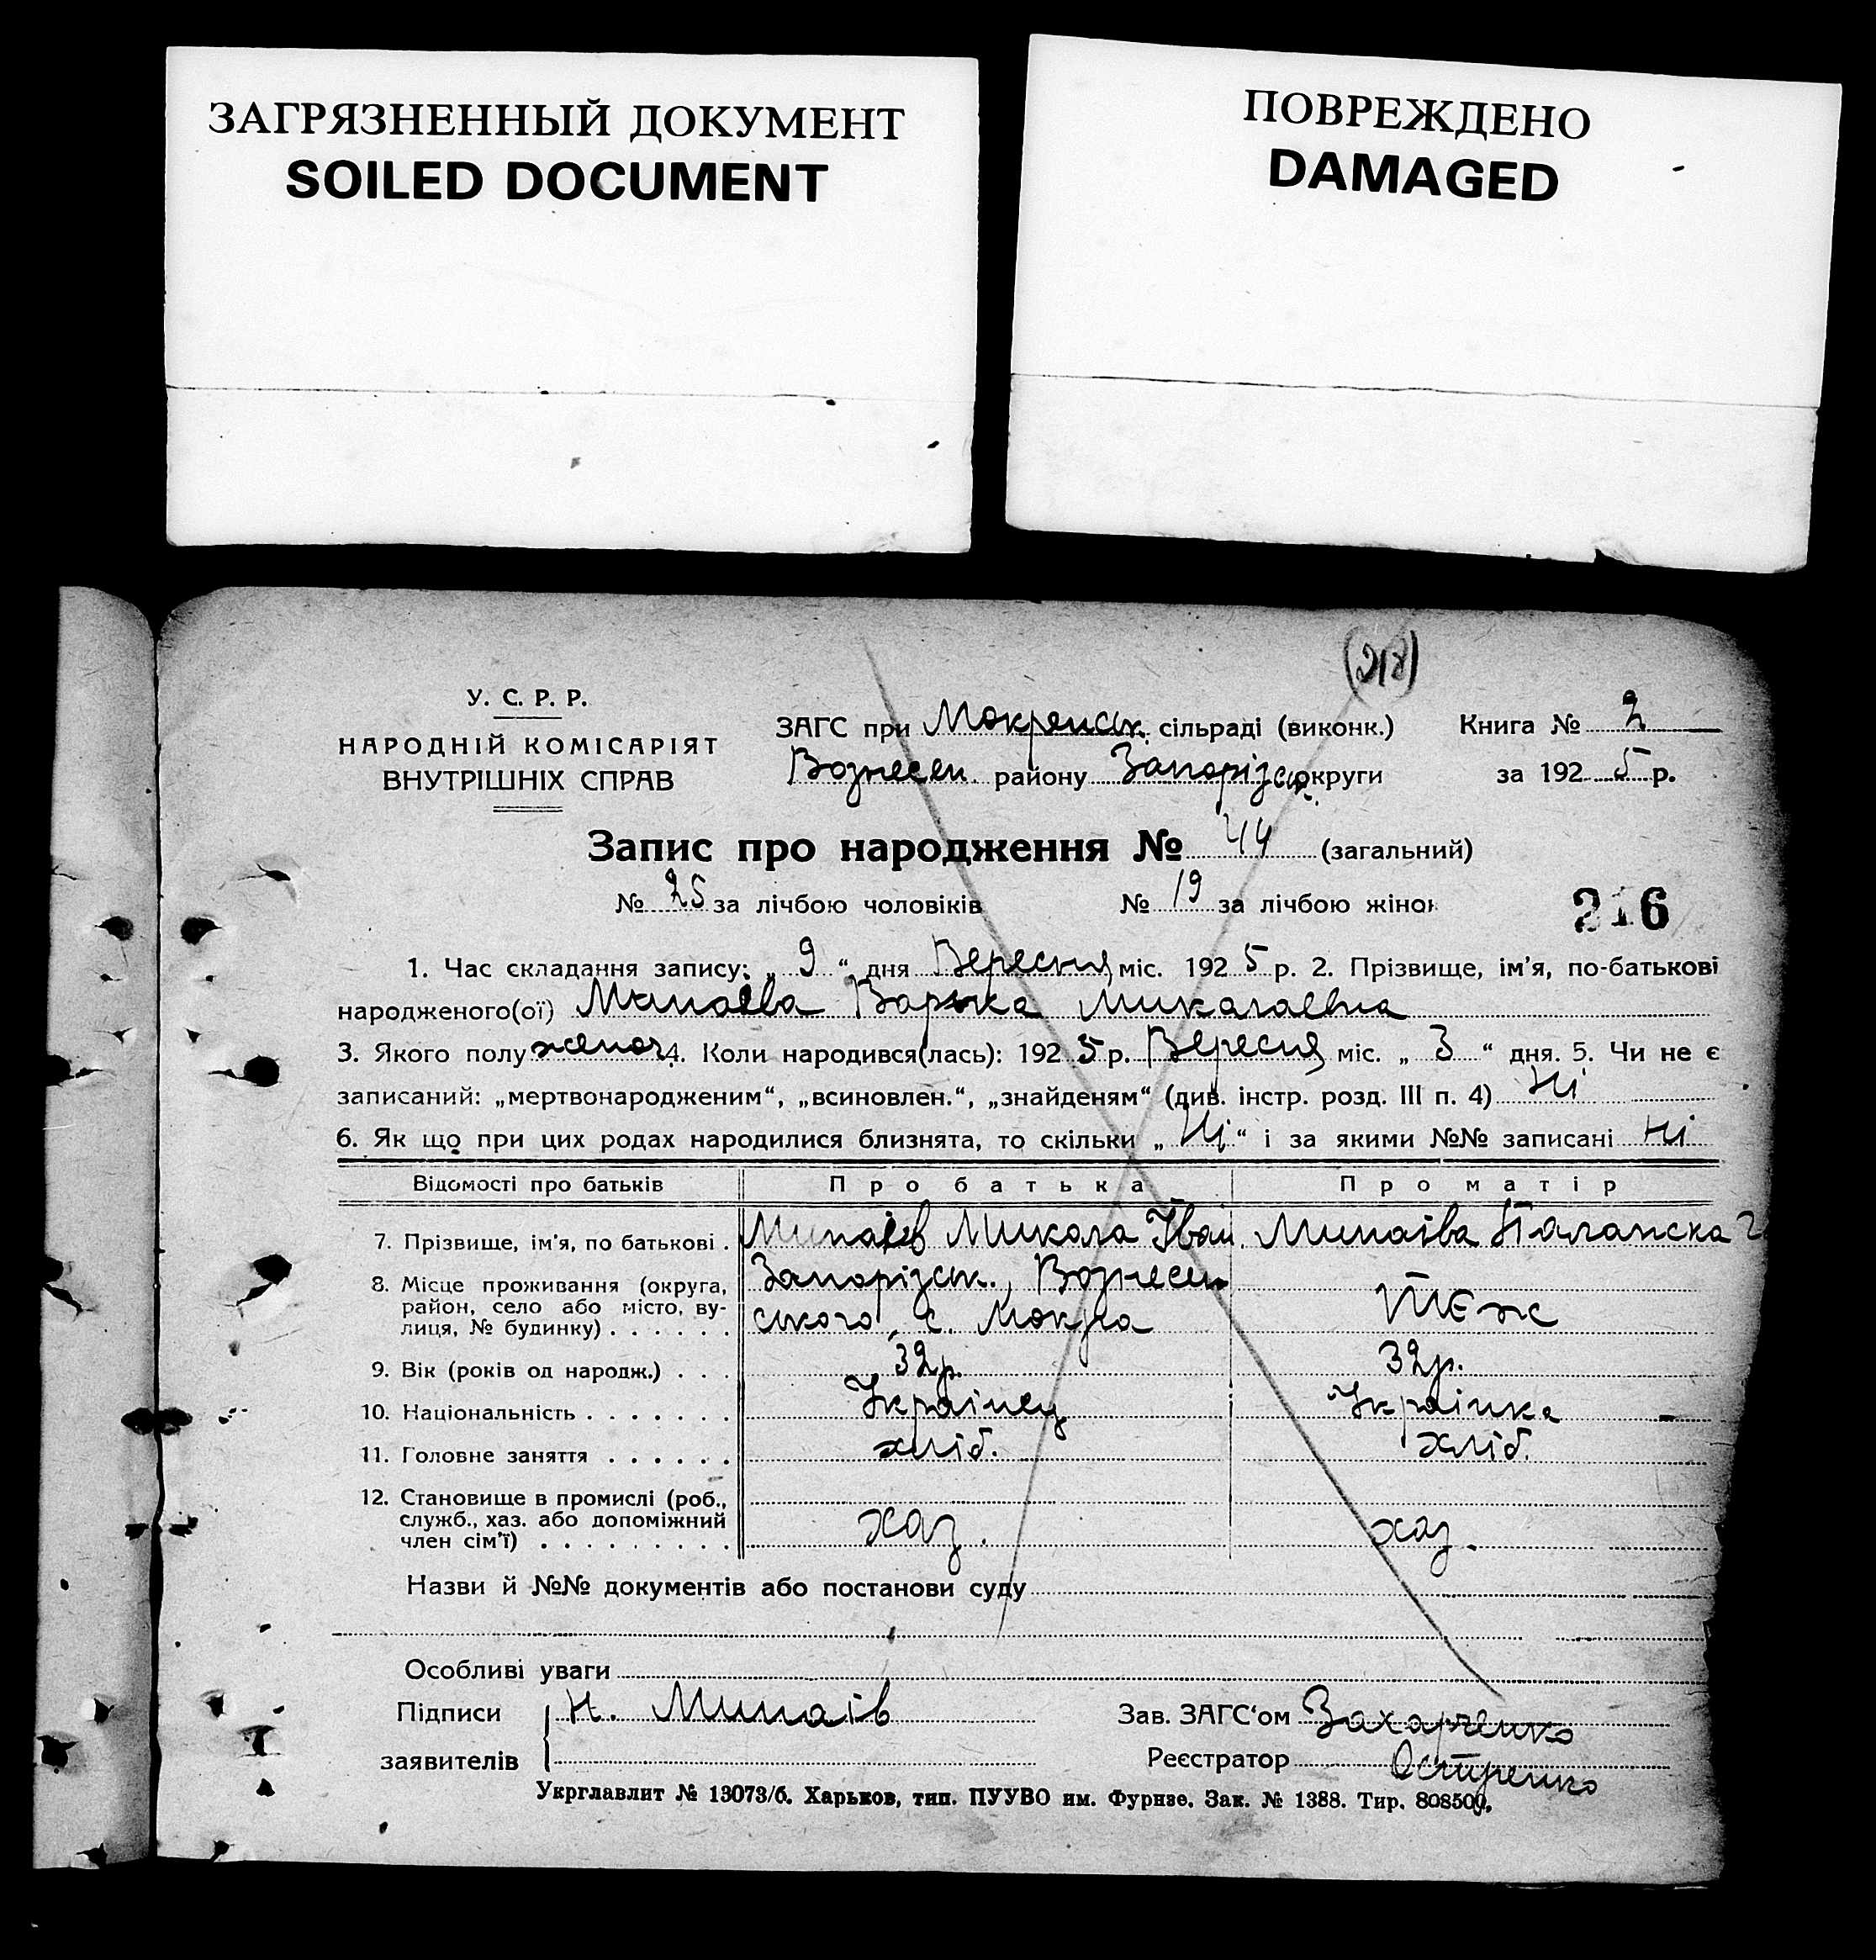 ЗАГРЯЗНЕННЫЙ ДОКУМЕНТ
SOILED DOCUMENT
ПОВРЕЖДЕНО
DAMAGED
(218)
У. С. Р. Р.
НАРОДНІЙ КОМІСАРІЯТ
ВНУТРІШНІХ СПРАВ
ЗАГС при Мокрянськ. сільраді (виконк.) Книга № 2
Вознесен. району Запорізськ. округи за 1925 р.
Запис про народження № 44 (загальний)
№ 25 за лічбою чоловіків № 19 за лічбою жінок
216
1. Час складання запису: „ 9 “ дня Вересня міс. 1925 р. 2. Прізвище, ім'я, по-батькові
народженого(ої) Минаева Варька Миколаевна
3. Якого полу женоч. 4. Коли народився(лась): 1925 р. Вересня міс. „ 3 “ дня. 5. Чи не є
записаний: „мертвонародженим“, „всиновлен.“, „знайденям“ (див. інстр. розд. III п. 4) Ні
6. Як що при цих родах народилися близнята, то скільки „ Ні “ і за якими №№ записані Ні
Відомості про батьків Про батька Про матір
7. Прізвище, ім'я, по батькові . Минаїв Микола Іван. Минаіва Палажка Г
8. Місце проживання (округа, район, село або місто, вулиця, № будинку) . . . . . .
Запорізськ., Вознесен
ського, с. Мокра теж
9. Вік (років од народж.) . . . 32р. 32р.
10. Національність . . . . . . . Украінец Украінка
11. Головне заняття . . . . . . хліб. хліб.
12. Становище в промислі (роб., служб., хаз. або допоміжний член сім'ї) . . . . . . . . . хаз. хаз.
Назви й №№ документів або постанови суду
Особливі уваги
Підписи заявителів Н. Минаів
Зав. ЗАГС‘ом Захарченко
Реєстратор Остренко
Укрглавлит № 13073/б. Харьков, тип. ПУУВО им. Фрунзе. Зак. № 1388. Тир. 808500.